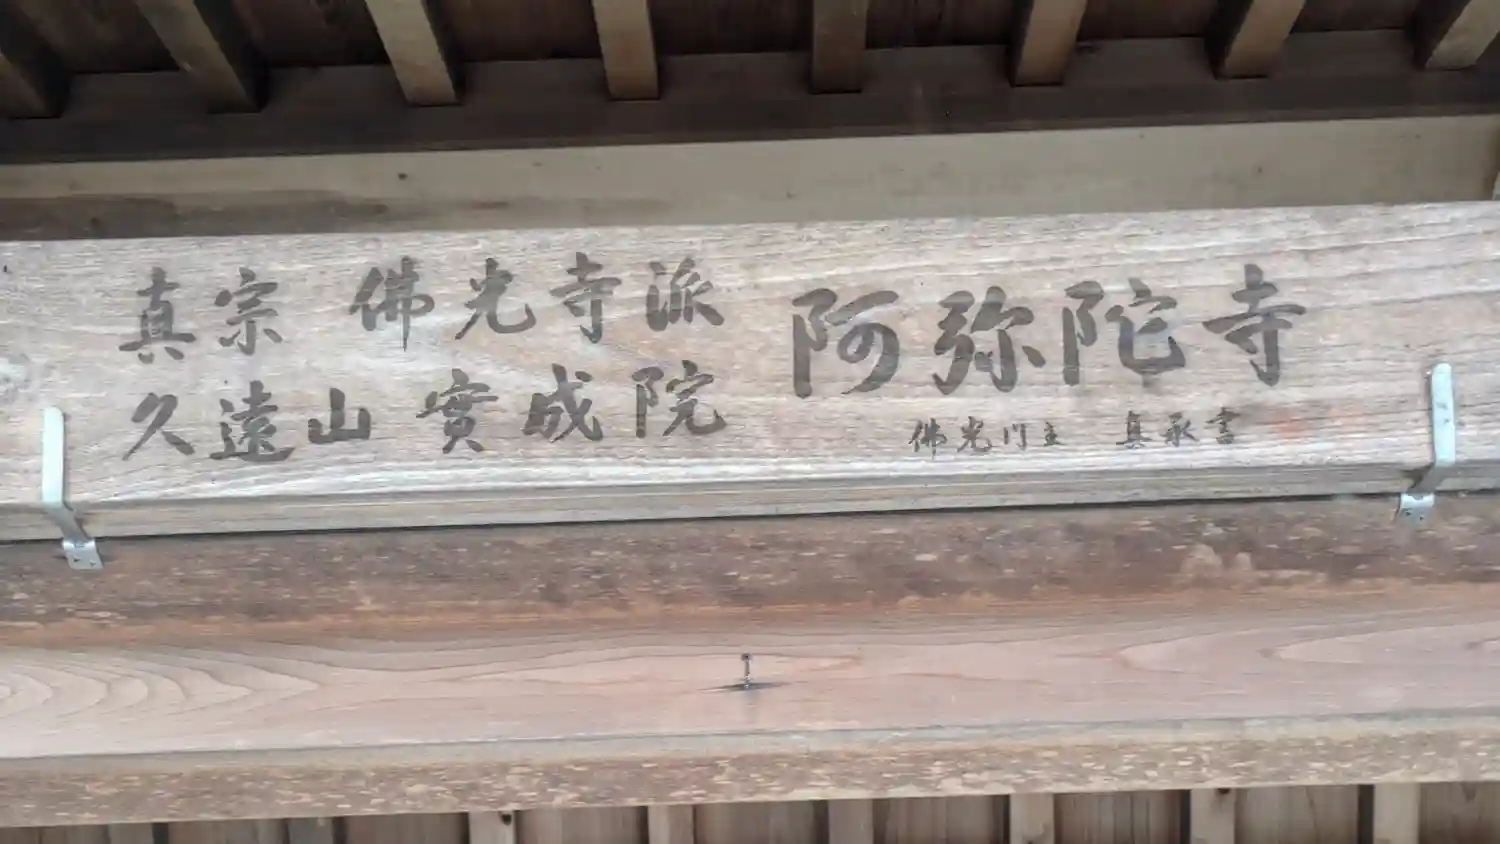 真宗 佛光寺派
久遠山 實成院
阿弥陀寺
佛光門主 真承書